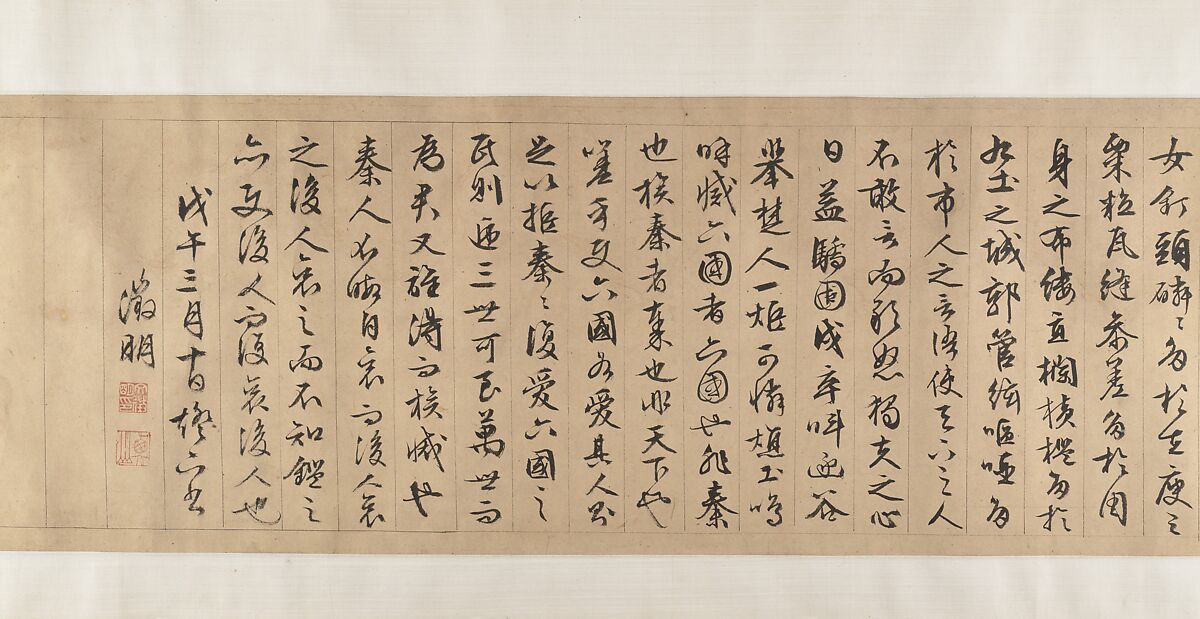 女釘頭磷〻多於在庾之
粟粒瓦縫參差多於周
身之帛縷直欄橫檻多於
九土之城郭管絃嘔啞多
於市人之言語使天下之人
不敢言而敢怒獨夫之心
日益驕固戍卒叫函谷
舉楚人一炬可憐燋土嗚
呼滅六國者六國也非秦
也族秦者秦也非天下也
嗟乎使六國各愛其人則
足以拒秦〻復愛六國之
民則遞三世可至萬世而
為君又誰得而族滅也
秦人不暇自哀而後人哀
之後人哀之而不知鑑之
亦使後人而復哀後人也
戊午三月十日燈下書
徵明